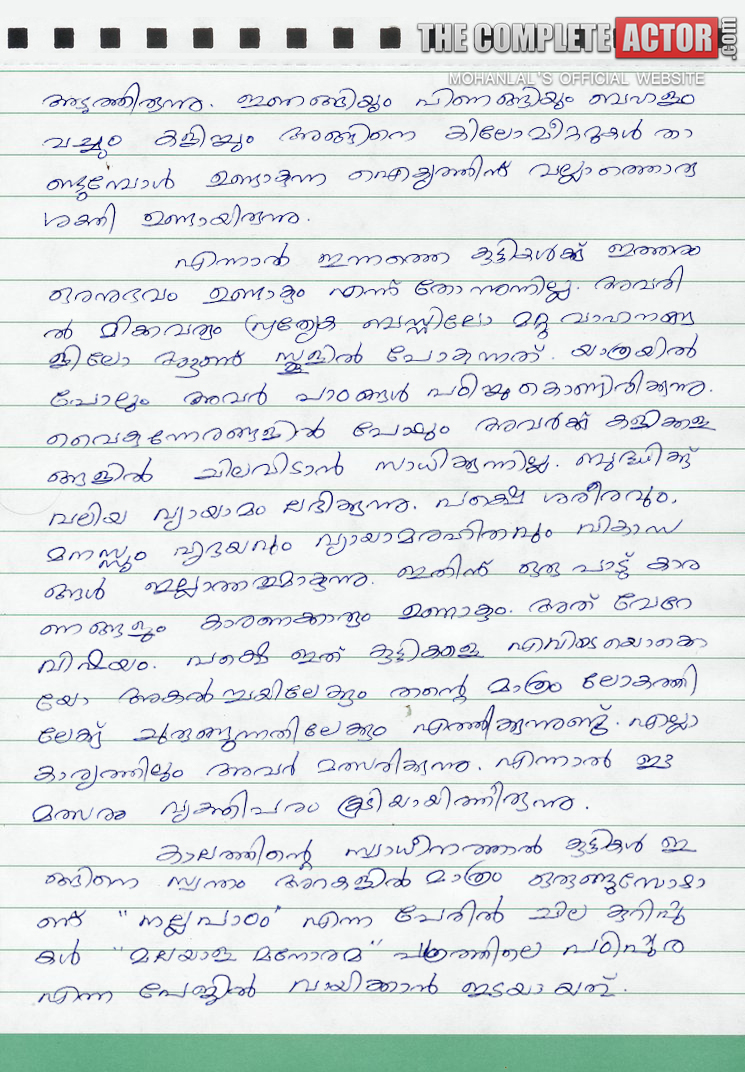 THE COMPLETE ACTOR.com
MOHANLAL'S OFFICIAL WEBSITE
അടുത്തിരുന്നു. ഇണങ്ങിയും പിണങ്ങിയും ബഹളം
വച്ചും കളിച്ചും അങ്ങിനെ കിലോമീറ്ററുകൾ താ
ണ്ടുമ്പോൾ ഉണ്ടാകുന്ന ഐക്യത്തിന് വല്ലാത്തൊരു
ശക്തി ഉണ്ടായിരുന്നു.
എന്നാൽ ഇന്നത്തെ കുട്ടികൾക്ക് ഇത്തരം
ഒരനുഭവം ഉണ്ടാകും എന്ന് തോന്നുന്നില്ല. അവരി
ൽ മിക്കവരും പ്രത്യേക ബസ്സിലോ മറ്റു വാഹനങ്ങ
ളിലോ ആണ് സ്കൂളിൽ പോകുന്നത്. യാത്രയിൽ
പോലും അവർ പാഠങ്ങൾ പഠിച്ചു കൊണ്ടിരിക്കുന്നു.
വൈകുന്നേരങ്ങളിൽ പോലും അവർക്ക് കളിക്കള
ങ്ങളിൽ ചിലവിടാൻ സാധിക്കുന്നില്ല. ബുദ്ധിക്ക്
വലിയ വ്യായാമം ലഭിക്കുന്നു. പക്ഷെ ശരീരവും,
മനസ്സും ഹൃദയവും വ്യായാമരഹിതവും വികാസ
ങ്ങൾ ഇല്ലാത്തതുമാകുന്നു. ഇതിന് ഒരു പാട് കാര
ണങ്ങളും കാരണക്കാരും ഉണ്ടാകും. അത് വേറേ
വിഷയം. പക്ഷെ ഇത് കുട്ടികളെ എവിടെയൊക്കെ
യോ അകൽച്ചയിലേക്കും തന്റെ മാത്രം ലോകത്തി
ലേക്ക് ചുരുങ്ങുന്നതിലേക്കും എത്തിക്കുന്നുണ്ട്. എല്ലാ
കാര്യത്തിലും അവർ മത്സരിക്കുന്നു. എന്നാൽ ഈ
മത്സരം വ്യക്തിപരം കൂടിയായിത്തീരുന്നു.
കാലത്തിന്റെ സ്വാധീനത്താൽ കുട്ടികൾ ഇ
ങ്ങിനെ സ്വന്തം അറകളിൽ മാത്രം ഒതുങ്ങുമ്പോഴാ
ണ് "നല്ലപാഠം" എന്ന പേരിൽ ചില കുറിപ്പു
കൾ "മലയാള മനോരമ" പത്രത്തിലെ പഠിപ്പുര
എന്ന പേജിൽ വായിക്കാൻ ഇടയായത്.